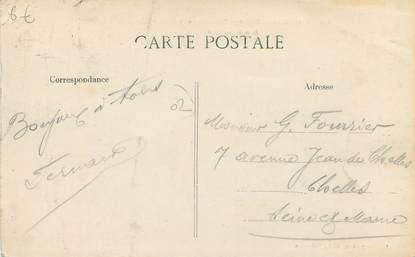 6€
CARTE POSTALE
Correspondance
Adresse
Bonjour à tous
02
Fernand
Monsieur G. Fournier
7 avenue Jean de Chelles
Chelles
Seine et Marne